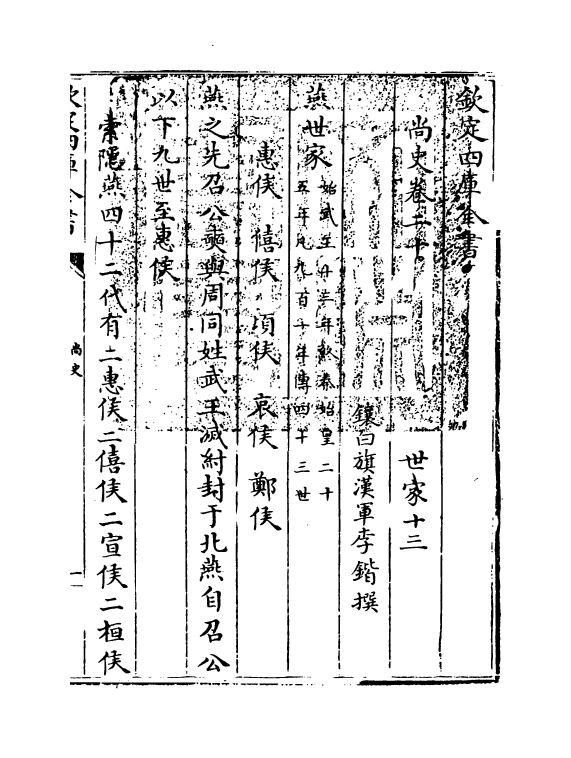 欽定四庫全書
尚史卷二十 世家十三
鑲白旗漢軍李鍇撰
燕世家 始武王十三年終秦始皇二十
五年凡九百十年傳四十三世
惠侯 僖侯 頃侯 哀侯 鄭侯
燕之先召公奭與周同姓武王滅紂封于北燕自召公
以下九世至惠侯
索隱燕四十二代有二惠侯二僖侯二宣侯二桓侯
尚史
一